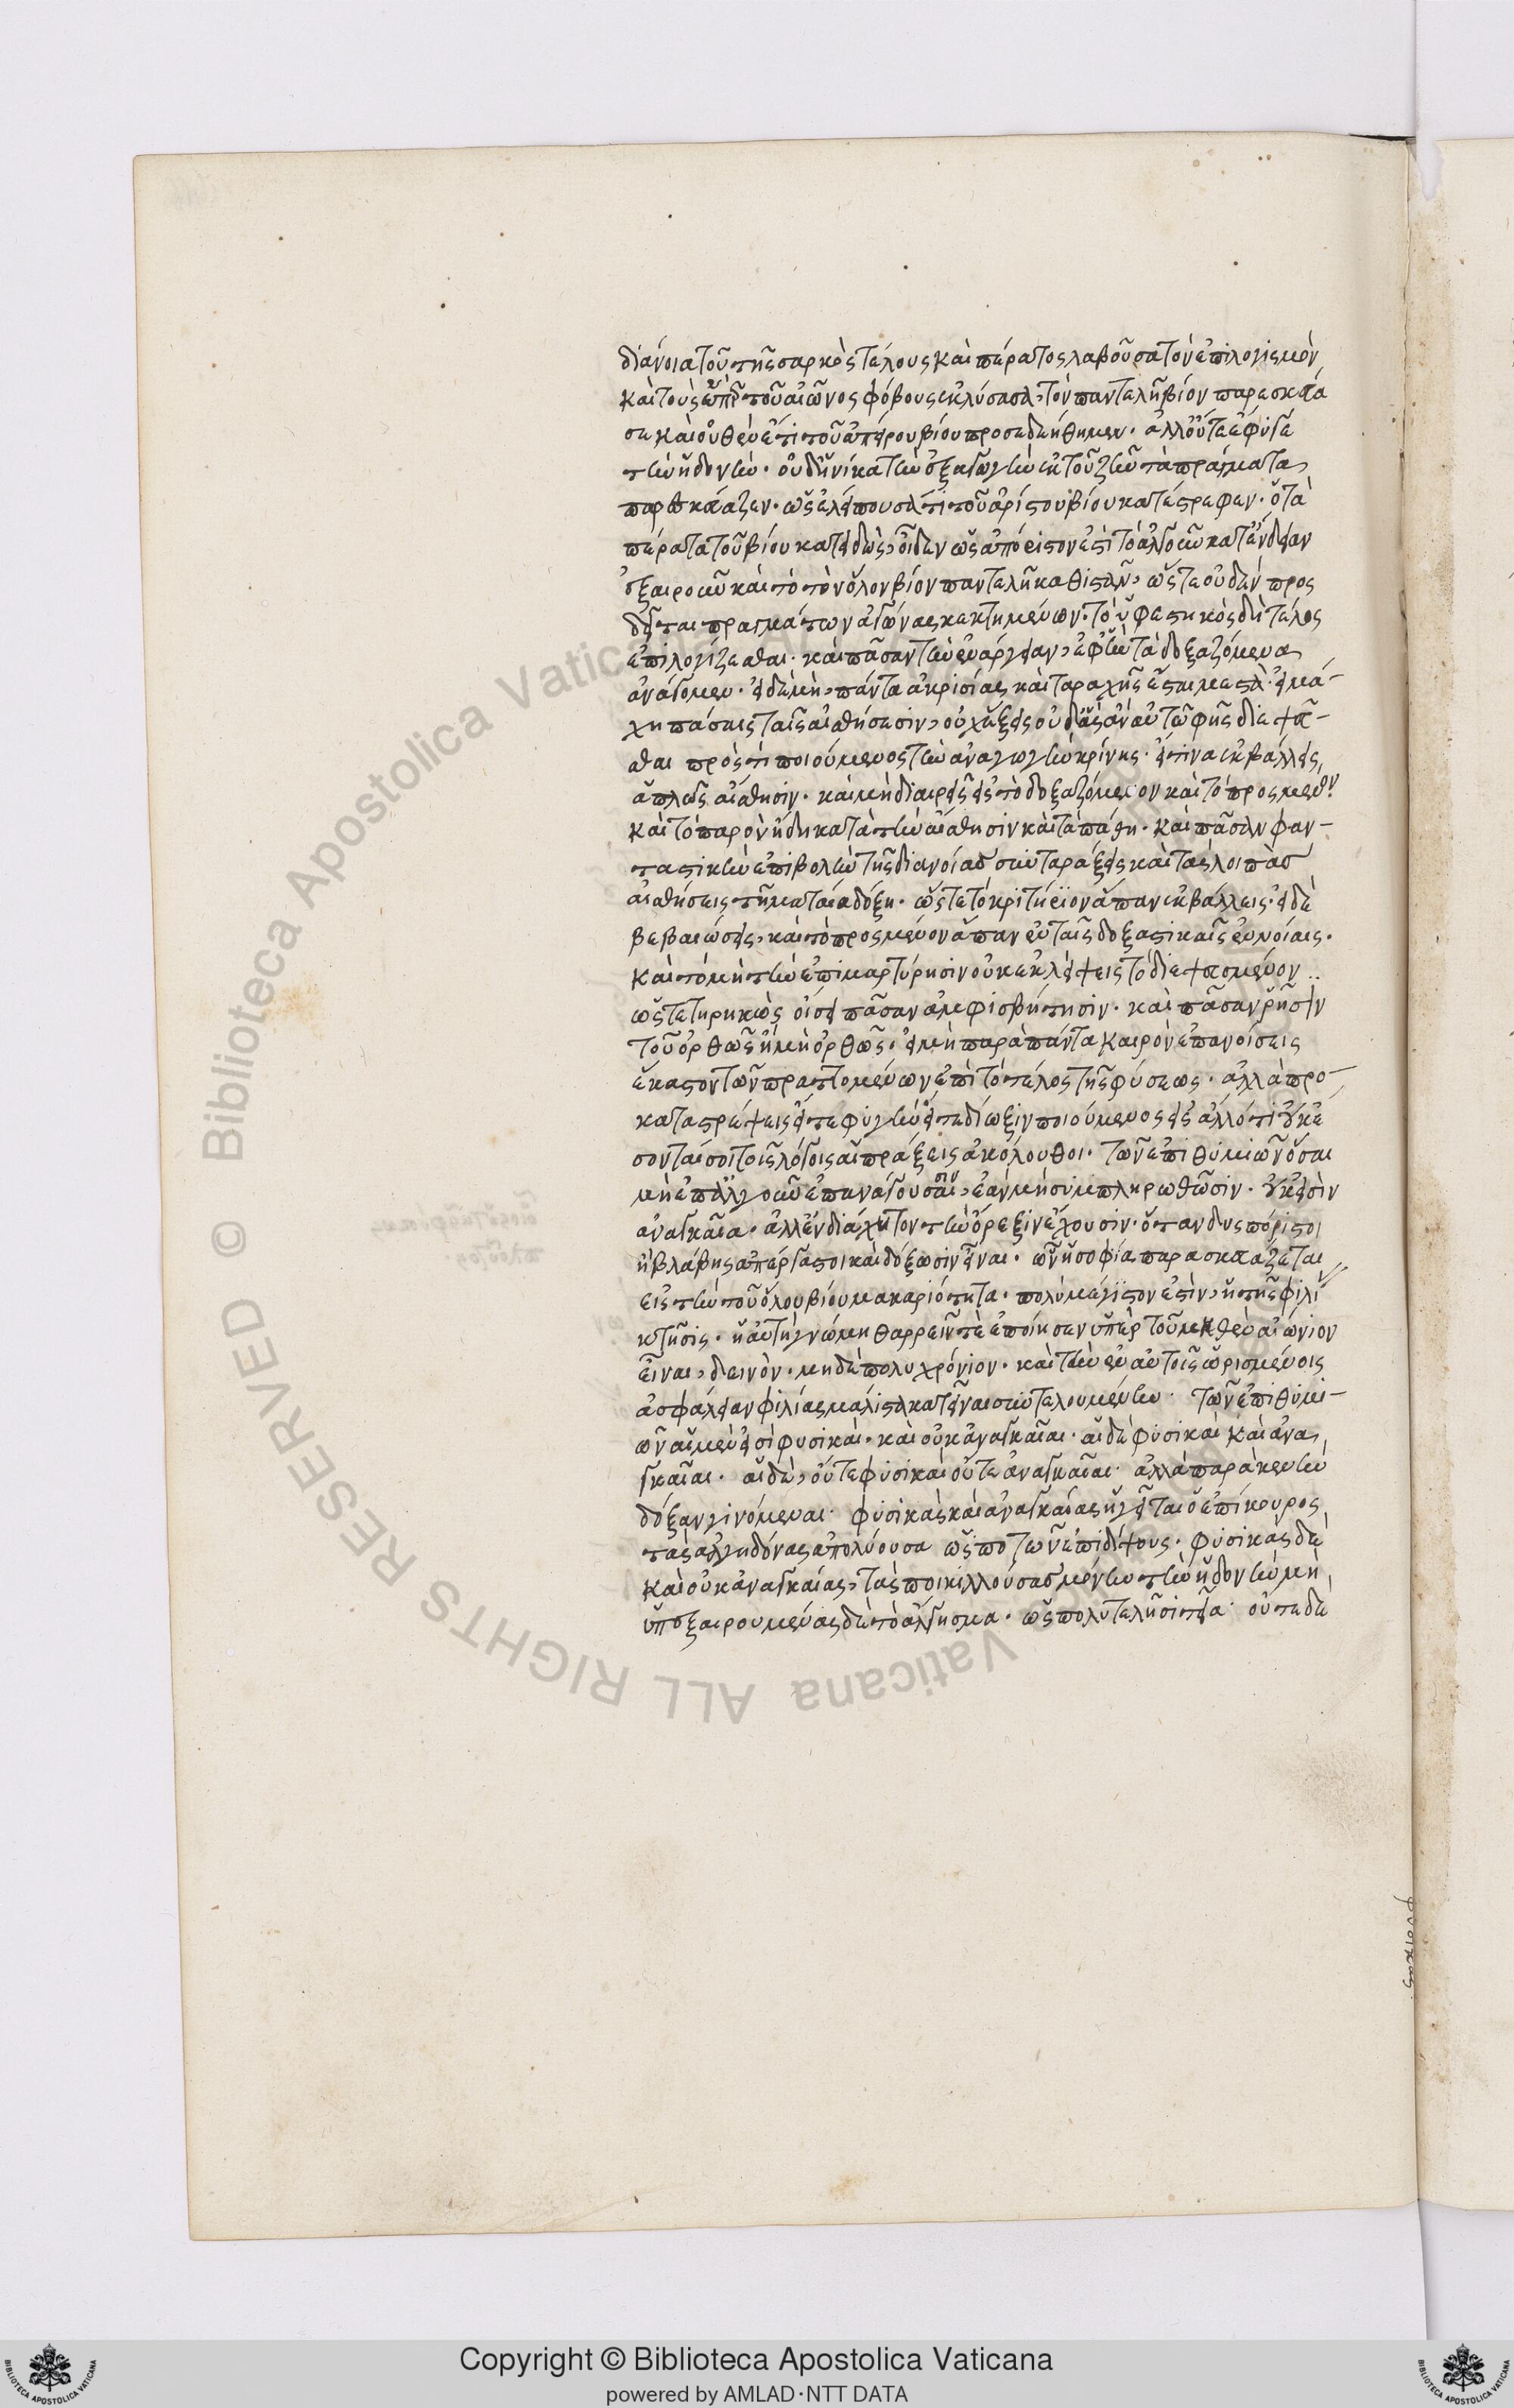 διάνοια τοῦ τῆς σαρκὸς τέλους καὶ πέρατος λαβοῦσα τὸν ἐπιλογισμὸν
καὶ τοὺς ὑπὲρ τοῦ αἰῶνος φόβους ἐκλύσασα, τὸν παντελῆ βίον παρεσκεύα
σε καὶ οὐθὲν ἔτι τοῦ ἀπείρου βίου προσεδεήθημεν. ἀλλ' οὔτε ἔφυγε
τὴν ἡδονὴν. οὐδ' ἡνίκα τὴν ἐξαγωγὴν ἐκ τοῦ ζῆν τὰ πράγματα
παρεσκεύαζεν. ὡς ἐλείπουσά τι τοῦ ἀρίστου βίου κατέστρεφεν. ὁ τὰ
πέρατα τοῦ βίου κατειδὼς, οἶδεν ὡς εὐπόριστον ἐστὶ τὸ ἀλγοῦν κατ' ἔνδειαν
ἐξαιροῦν καὶ τὸ τὸν ὅλον βίον παντελῆ καθιστὰν, ὥστε οὐδὲν προς
δεῖται πραγμάτων ἀγῶνας κεκτημένων. τὸ ὑφεστηκὸς δεῖ τέλος
ἐπιλογίζεσθαι. καὶ πᾶσαν τὴν ἐνάργειαν, ἐφ' ἣν τὰ δοξαζόμενα
ἀνάγομεν. εἰ δὲ μὴ, πάντα ἀκρισίας καὶ ταραχῆς ἔσται μεστὰ. εἰ μά-
χη πάσαις ταῖς αἰσθήσεσιν, οὐχ ἕξεις οὐδ' ἃς ἂν αὐτῶν φῇς διεψεῦ-
σθαι πρὸς τί ποιούμενος τὴν ἀναγωγὴν κρίνης. εἴ τινα ἐκβάλλεις
ἁπλῶς αἴσθησιν. καὶ μὴ διαιρεῖς εἰς τὸ δοξαζόμενον καὶ τὸ προσμενον
καὶ τὸ παρὸν ἤδη κατὰ τὴν αἴσθησιν καὶ τὰ πάθη. καὶ πᾶσαν φαν-
ταστικὴν ἐπιβολὴν τῆς διανοίας συνταράξεις καὶ τὰς λοιπὰς
αἰσθήσεις τῇ ματαία δόξη. ὥστε τὸ κριτήριον ἅπαν ἐκβάλλεις. εἰ δὲ
βεβαιώσεις, καὶ τὸ προσμένον ἅπαν ἐν ταῖς δοξαστικαῖς ἐννοίαις.
καὶ τὸ μὴ τὴν ἐπιμαρτύρησιν οὐκ ἐκλείψεις τὸ διεψευσμένον..
ὡς τετηρηκὼς οἴσει πᾶσαν ἀμφισβήτησιν. καὶ πᾶσαν κρίσιν
τοῦ ὀρθῶς ἢ μὴ ὀρθῶς. εἰ μὴ παρὰ πάντα καιρὸν ἐπανοίσεις
ἕκαστον τῶν πραττομένων ἐπὶ τὸ τέλος τῆς φύσεως. ἀλλὰ προ-
καταστρέψεις εἴτε φυγὴν εἴτε δίωξιν ποιούμενος εἰς ἄλλό τι οὐκ ἔ
σονταί σοι τοῖς λόγοις αἱ πράξεις ἀκόλουθοι. τῶν ἐπιθυμιῶν ὅσαι
μὴ ἐπ' ἀλγοῦν ἐπανάγουσιν, ἐὰν μὴ συμπληρωθῶσιν. οὐκ εἰσὶν
ἀναγκαῖαι. ἀλλ' εὐδιάχυτον τὴν ὄρεξιν ἔχουσιν. ὅταν δυσπόριστοι
ἢ βλάβης ἀπεργαστικαὶ δόξωσιν εἶναι. ὧν ἡ σοφία παρασκευάζεται
εἰς τὴν τοῦ ὅλου βίου μακαριότητα. πολὺ μέγιστον ἐστὶν, ἡ τῆς φιλί
κτῆσις. ἡ αὐτὴ γνώμη θαρρεῖν τε ἐποίησεν ὑπὲρ τοῦ μηθὲν αἰώνιον
εἶναι, δεινὸν. μηδὲ πολυχρόνιον. καὶ τὴν ἐν αὐτοῖς ὡρισμένοις
ἀσφάλειαν φιλίας μάλιστα κατεῖναι συντελουμένην. τῶν ἐπιθυμι-
ῶν αἱ μέν εἰσὶ φυσικαὶ. καὶ οὐκ ἀναγκαῖαι. αἱ δὲ φυσικαὶ καὶ ἀνα
γκαῖαι. αἱ δὲ, οὔτε φυσικαὶ οὔτε ἀναγκαῖαι. ἀλλὰ παρὰ κενὴν
δόξαν γινόμεναι. φυσικὰς καὶ ἀναγκαίας ἡγεῖται ὁ ἐπίκουρος
τὰς ἀλγηδόνας ἀπολύουσα ὡς ποτὸν ἐπὶ δίψους. φυσικὰς δὲ
καὶ οὐκ ἀναγκαίας, τὰς ποικιλλούσας μόνον τὴν ἡδονὴν μὴ
ὑπεξαιρουμένας δὲ τὸ ἄλγημα. ὡς πολυτελῆ σιτία. οὔτε δὲ
φυσικὰς
Biblioteca Apostolica Vaticana ALL RIGHTS RESERVED ©
Copyright © Biblioteca Apostolica Vaticana
powered by AMLAD·NTT DATA
BIBLIOTECA APOSTOLICA VATICANA
BIBLIOTECA APOSTOLICA VATICANA